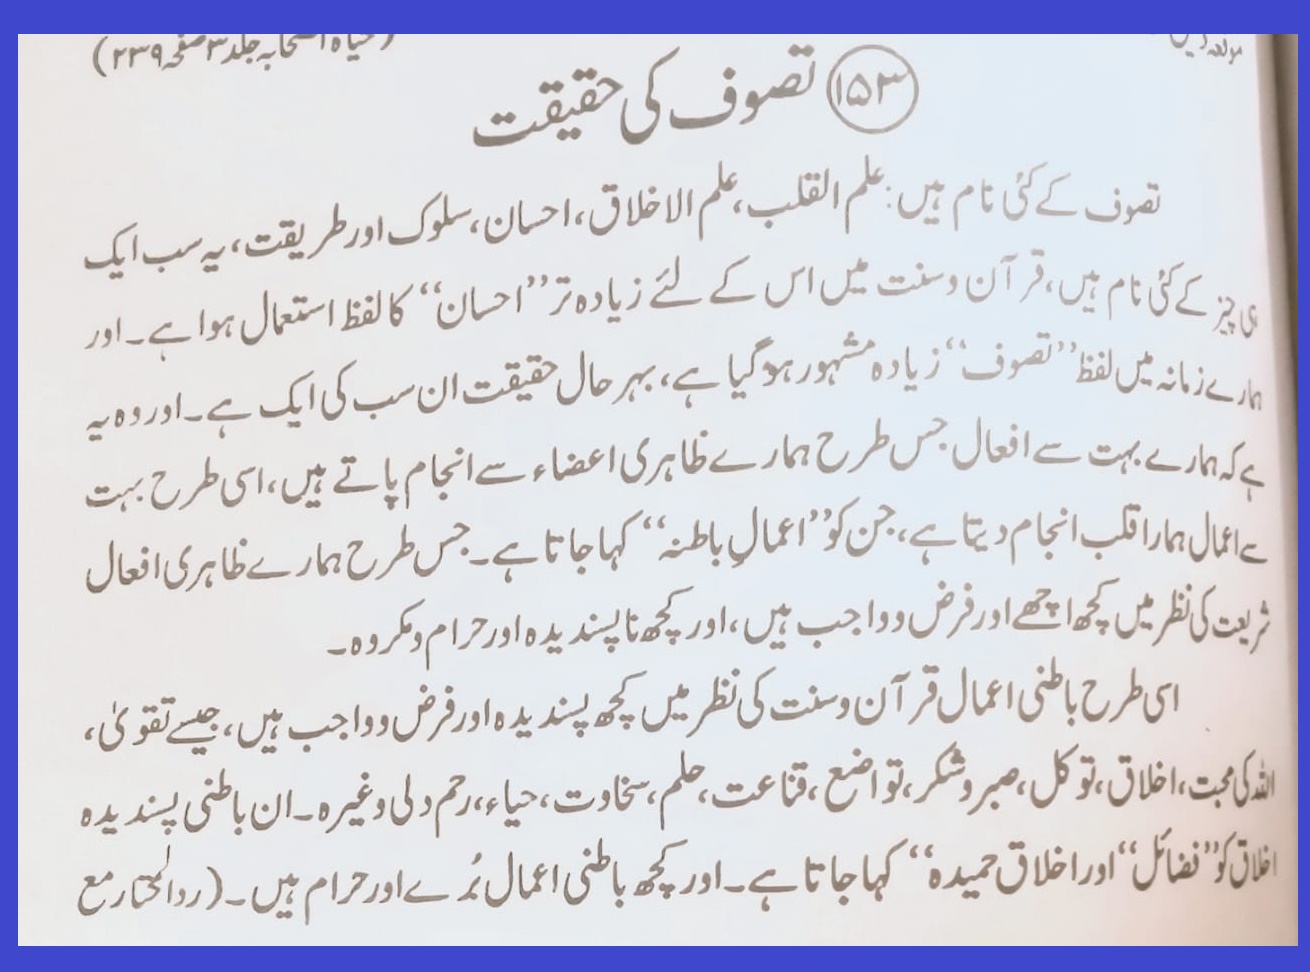 (حیاۃ الصحابہ جلد ۳ صفحہ ۲۳۹)
۱۵۳ تصوف کی حقیقت
تصوف کے کئی نام ہیں: علم القلب، علم الاخلاق، احسان، سلوک اور طریقت، یہ سب ایک
ہی چیز کے کئی نام ہیں، قرآن وسنت میں اس کے لئے زیادہ تر ”احسان“ کا لفظ استعمال ہوا ہے۔ اور
ہمارے زمانہ میں لفظ ”تصوف“ زیادہ مشہور ہوگیا ہے، بہرحال حقیقت ان سب کی ایک ہے۔ اور وہ یہ
ہے کہ ہمارے بہت سے افعال جس طرح ہمارے ظاہری اعضاء سے انجام پاتے ہیں، اسی طرح بہت
سے اعمال ہمارا قلب انجام دیتا ہے، جن کو ”اعمالِ باطنہ“ کہا جاتا ہے۔ جس طرح ہمارے ظاہری افعال
شریعت کی نظر میں کچھ اچھے اور فرض وواجب ہیں، اور کچھ ناپسندیدہ اور حرام ومکروہ۔
اسی طرح باطنی اعمال قرآن وسنت کی نظر میں کچھ پسندیدہ اور فرض وواجب ہیں، جیسے تقویٰ،
اللہ کی محبت، اخلاق، توکل، صبر وشکر، تواضع، قناعت، حلم، سخاوت، حیاء، رحم دلی وغیرہ۔ ان باطنی پسندیدہ
اخلاق کو ”فضائل“ اور اخلاق حمیدہ“ کہا جاتا ہے۔ اور کچھ باطنی اعمال بُرے اور حرام ہیں۔ (ردالمختار مع